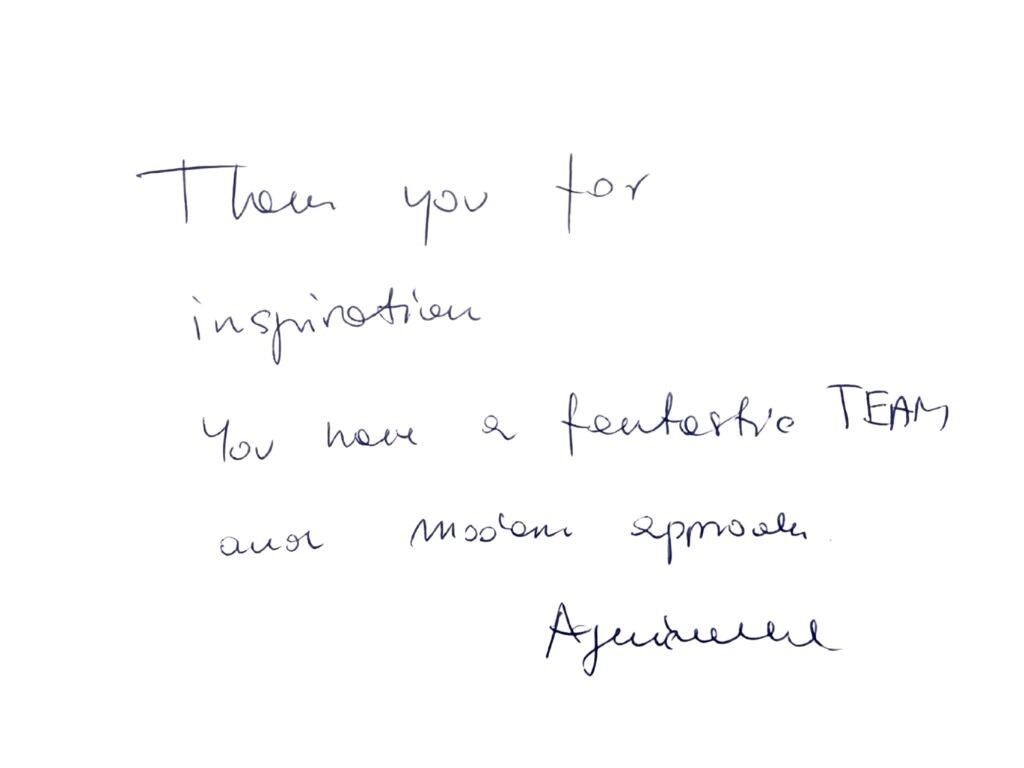 Thank you for
inspiration
You have a fantastic TEAM
and modern approach.